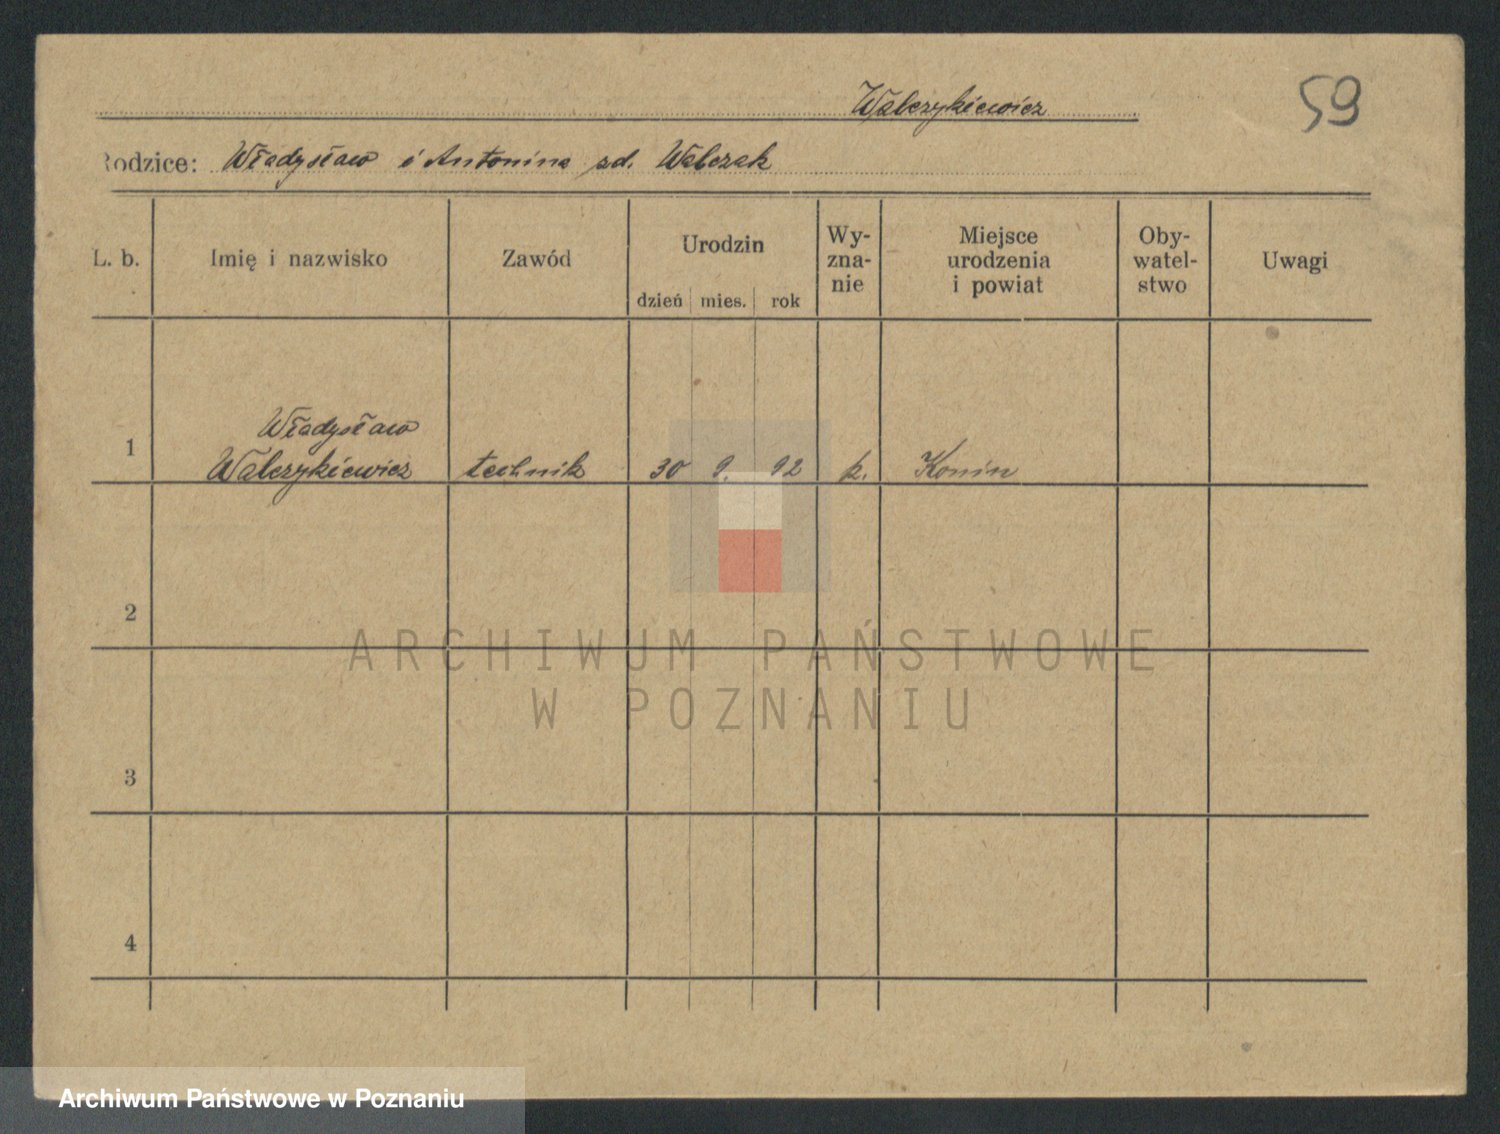 Walczykiewicz
59
Rodzice: Władysław i Antonina zd. Walczak
L. b. Imię i nazwisko Zawód Urodzin dzień mies. rok Wy-zna-nie Miejsce urodzenia i powiat Oby-watel-stwo Uwagi
Władysław
1 Walczykiewicz technik 30 9. 92 k. Konin
2
ARCHIWUM PAŃSTWOWE
W POZNANIU
3
4
Archiwum Państwowe w Poznaniu